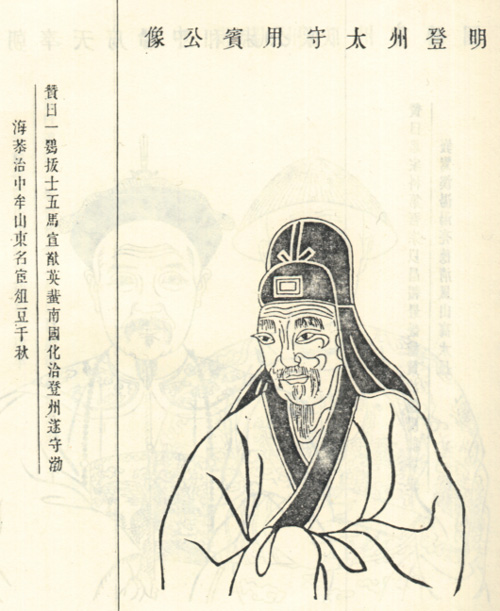 明登州太守用賓公像
贊曰一鶚拔士五馬宣猷英蜚南國化洽登州遂守渤
海恭治中牟山東名宦俎豆千秋